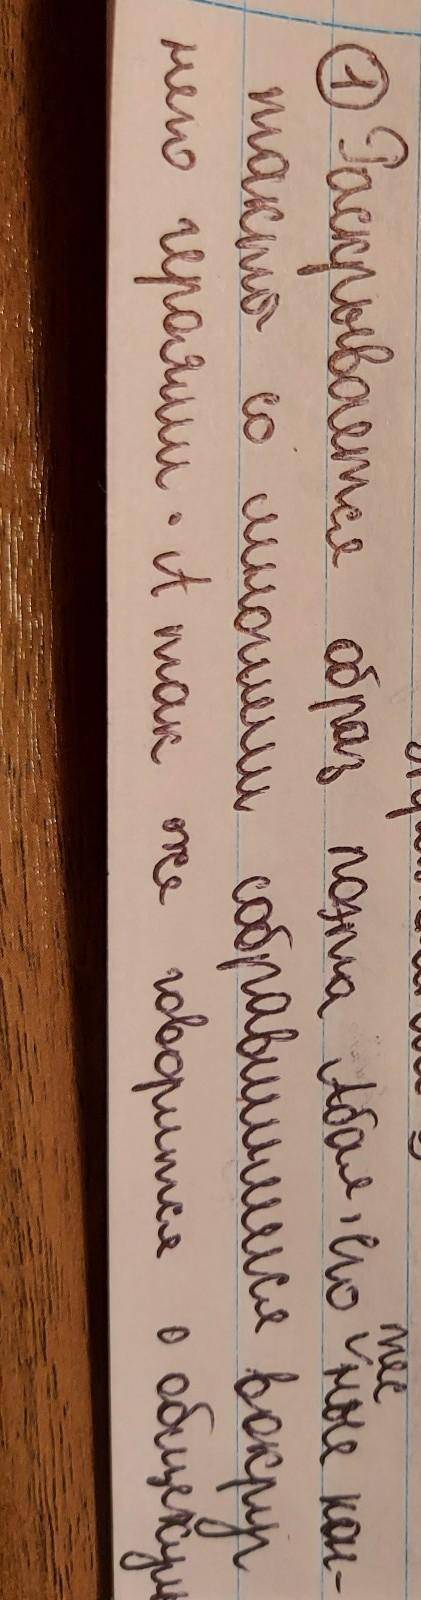 ① Раскрывается образ поэта Абая, его тесные кон-
такты со многими собравшимися вокруг
него героями. А так же говорится о общекул